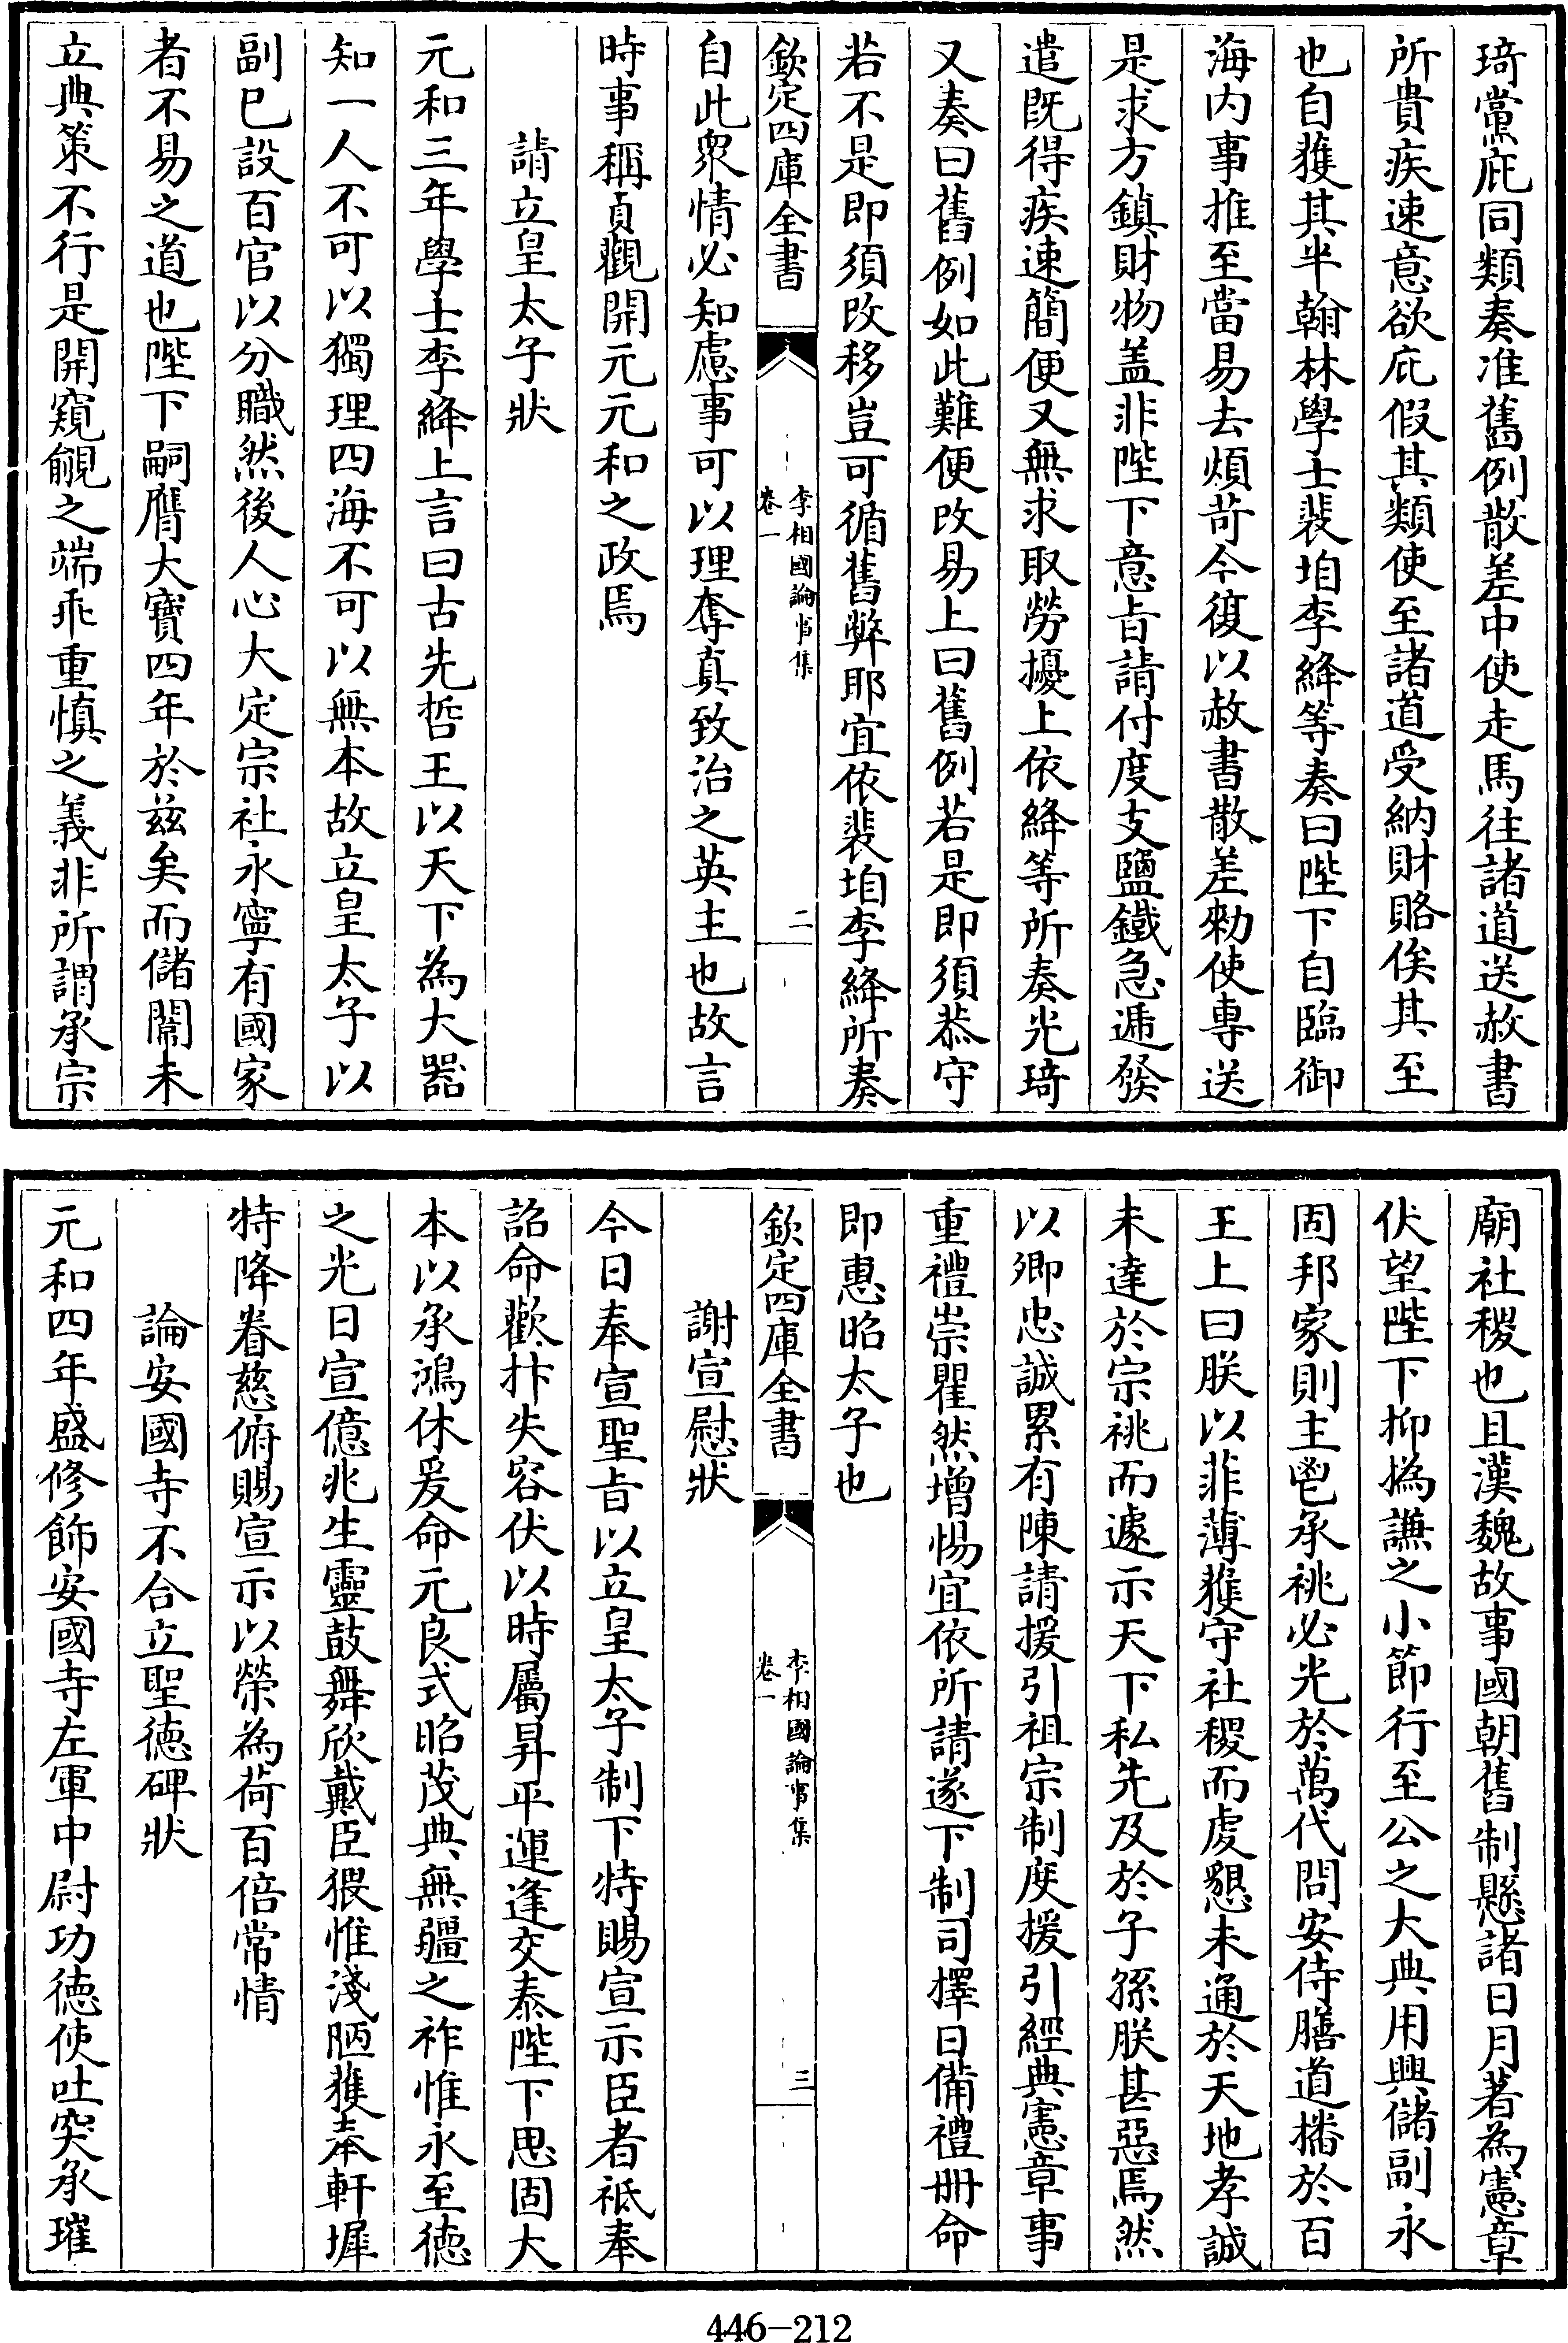 琦黨庇同類奏准舊例散差中使走馬往諸道送赦書
所貴疾速意欲庇假其類使至諸道受納財賂俟其至
也自獲其半翰林學士裴垍李絳等奏曰陛下自臨御
海內事推至當易去煩苛今復以赦書散差勑使專送
是求方鎮財物盖非陛下意旨請付度支鹽鐵急遞發
遣既得疾速簡便又無求取勞擾上依絳等所奏光琦
又奏曰舊例如此難便改易上曰舊例若是即須恭守
若不是即須改移豈可循舊弊耶宜依裴垍李絳所奏
欽定四庫全書
李相國論事集
卷一
二
自此衆情必知慮事可以理奪真致治之英主也故言
時事稱貞觀開元元和之政焉
請立皇太子狀
元和三年學士李絳上言曰古先哲王以天下為大器
知一人不可以獨理四海不可以無本故立皇太子以
副已設百官以分職然後人心大定宗社永寧有國家
者不易之道也陛下嗣膺大寶四年於兹矣而儲闈未
立典策不行是開窺覦之端乖重慎之義非所謂承宗
廟社稷也且漢魏故事國朝舊制懸諸日月著為憲章
伏望陛下抑撝謙之小節行至公之大典用興儲副永
固邦家則主鬯承祧必光於萬代問安侍膳道播於百
王上曰朕以菲薄獲守社稷而虔懇未通於天地孝誠
未達於宗祧而遽示天下私先及於子孫朕甚惡焉然
以卿忠誠累有陳請援引祖宗制度援引經典憲章事
重禮崇瞿然增惕宜依所請遂下制司擇日備禮冊命
即惠昭太子也
欽定四庫全書
李相國論事集
卷一
三
謝宣慰狀
今日奉宣聖旨以立皇太子制下特賜宣示臣者祗奉
詔命歡抃失容伏以時屬昇平運逢交泰陛下思固大
本以承鴻休爰命元良式昭茂典無疆之祚惟永至德
之光日宣億兆生靈鼓舞欣戴臣猥惟淺陋獲奉軒墀
特降眷慈俯賜宣示以榮為荷百倍常情
論安國寺不合立聖德碑狀
元和四年盛修飾安國寺左軍中尉功德使吐突承璀
446-212